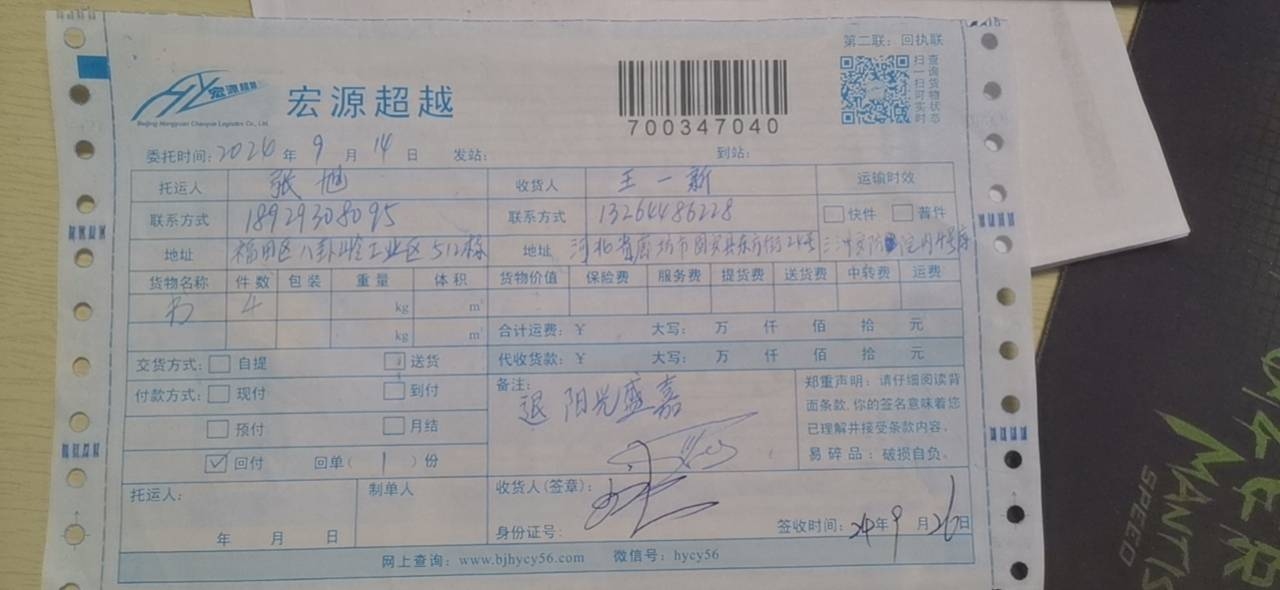 第二联：回执联
扫一扫查询货物实时状态
宏源超越
宏源超越
Beijing Hongyuan Chaoyue Logistics Co., Ltd.
700347040
委托时间：2024 年 9 月 14 日 发站： 到站：
托运人 张旭 收货人 王一新 运输时效
联系方式 18929308095 联系方式 13264486228 快件 普件
地址 福田区八卦岭工业区512栋 地址 河北省廊坊市固安县东方街24号
货物名称 件数 包装 重量 体积 货物价值 保险费 服务费 提货费 送货费 中转费 运费
书 4 kg m³
kg m³ 合计运费：¥ 大写： 万 仟 佰 拾 元
交货方式： 自提 送货 代收货款：¥ 大写： 万 仟 佰 拾 元
付款方式： 现付 到付
预付 月结
回付 回单（1）份
备注：
退 阳光盛嘉
郑重声明：请仔细阅读背
面条款，你的签名意味着您
已理解并接受条款内容。
易碎品：破损自负。
托运人： 制单人 收货人(签章)：
年 月 日 身份证号： 签收时间：24年9月26日
网上查询：www.bjhycy56.com 微信号：hycy56
MANTIS
SPEED